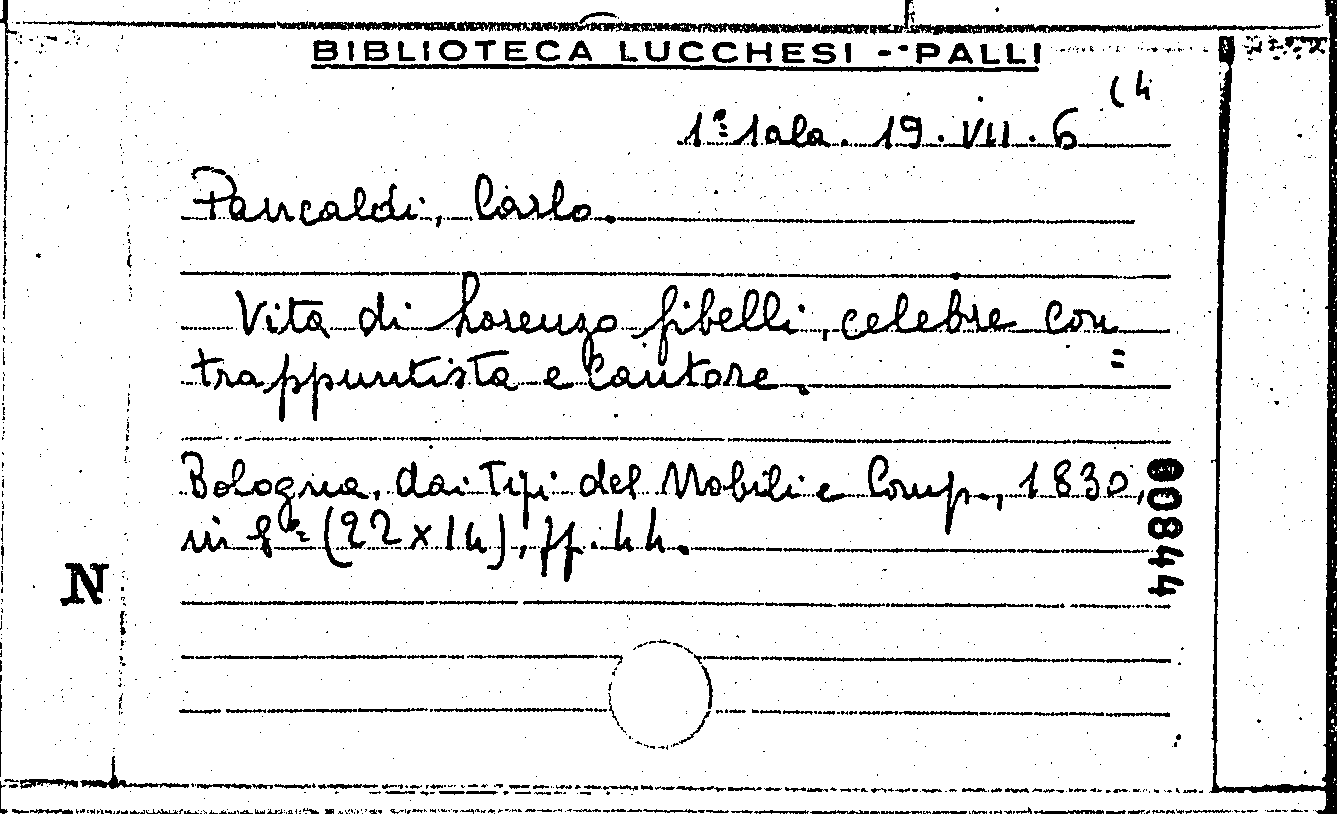 BIBLIOTECA LUCCHESI - PALLI
1ª sala. 19. VII. 6 (4
Pancaldi, Carlo.
Vita di Lorenzo Gibelli, celebre con=
trappuntista e cantore.
Bologna, dai Tipi del Nobili e Comp., 1830,
in 8º (22x14), pp. 44.
N
00844